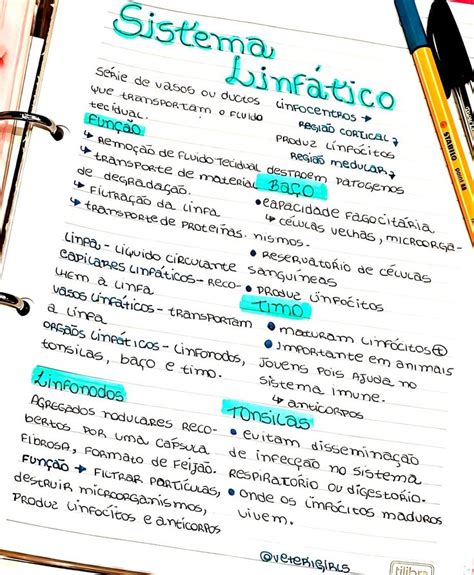 Sistema
Linfático
Série de vasos ou ductos
que transportam o fluido
tecidual.
Função
↳ Remoção de fluido tecidual
↳ transporte de material
de degradação.
↳ Filtração da linfa
↳ transporte de proteínas.
Linfa - líquido circulante
capilares linfáticos - reco-
lhem a linfa
vasos linfáticos - transportam
a linfa
orgãos linfáticos - linfonodos,
tonsilas, baço e timo.
Linfonodos
Agregados nodulares reco-
bertos por uma cápsula
fibrosa, formato de feijão.
Função → filtrar partículas,
destruir microorganismos,
produz linfócitos e anticorpos
Linfocentros →
Região cortical ↓
produz linfócitos
Região medular ↓
destroem patogenos
Baço
• capacidade fagocitária
↳ células velhas, microorga-
nismos.
• Reservatório de células
sanguíneas
• Produz linfócitos
Timo
• maturam linfócitos T
• Importante em animais
jovens pois ajuda no
sistema imune.
↳ anticorpos
Tonsilas
• evitam disseminação
de infecção no sistema
respiratório ou digestório.
• onde os linfócitos maduros
vivem.
@veterigirls
tilibra
STABILO